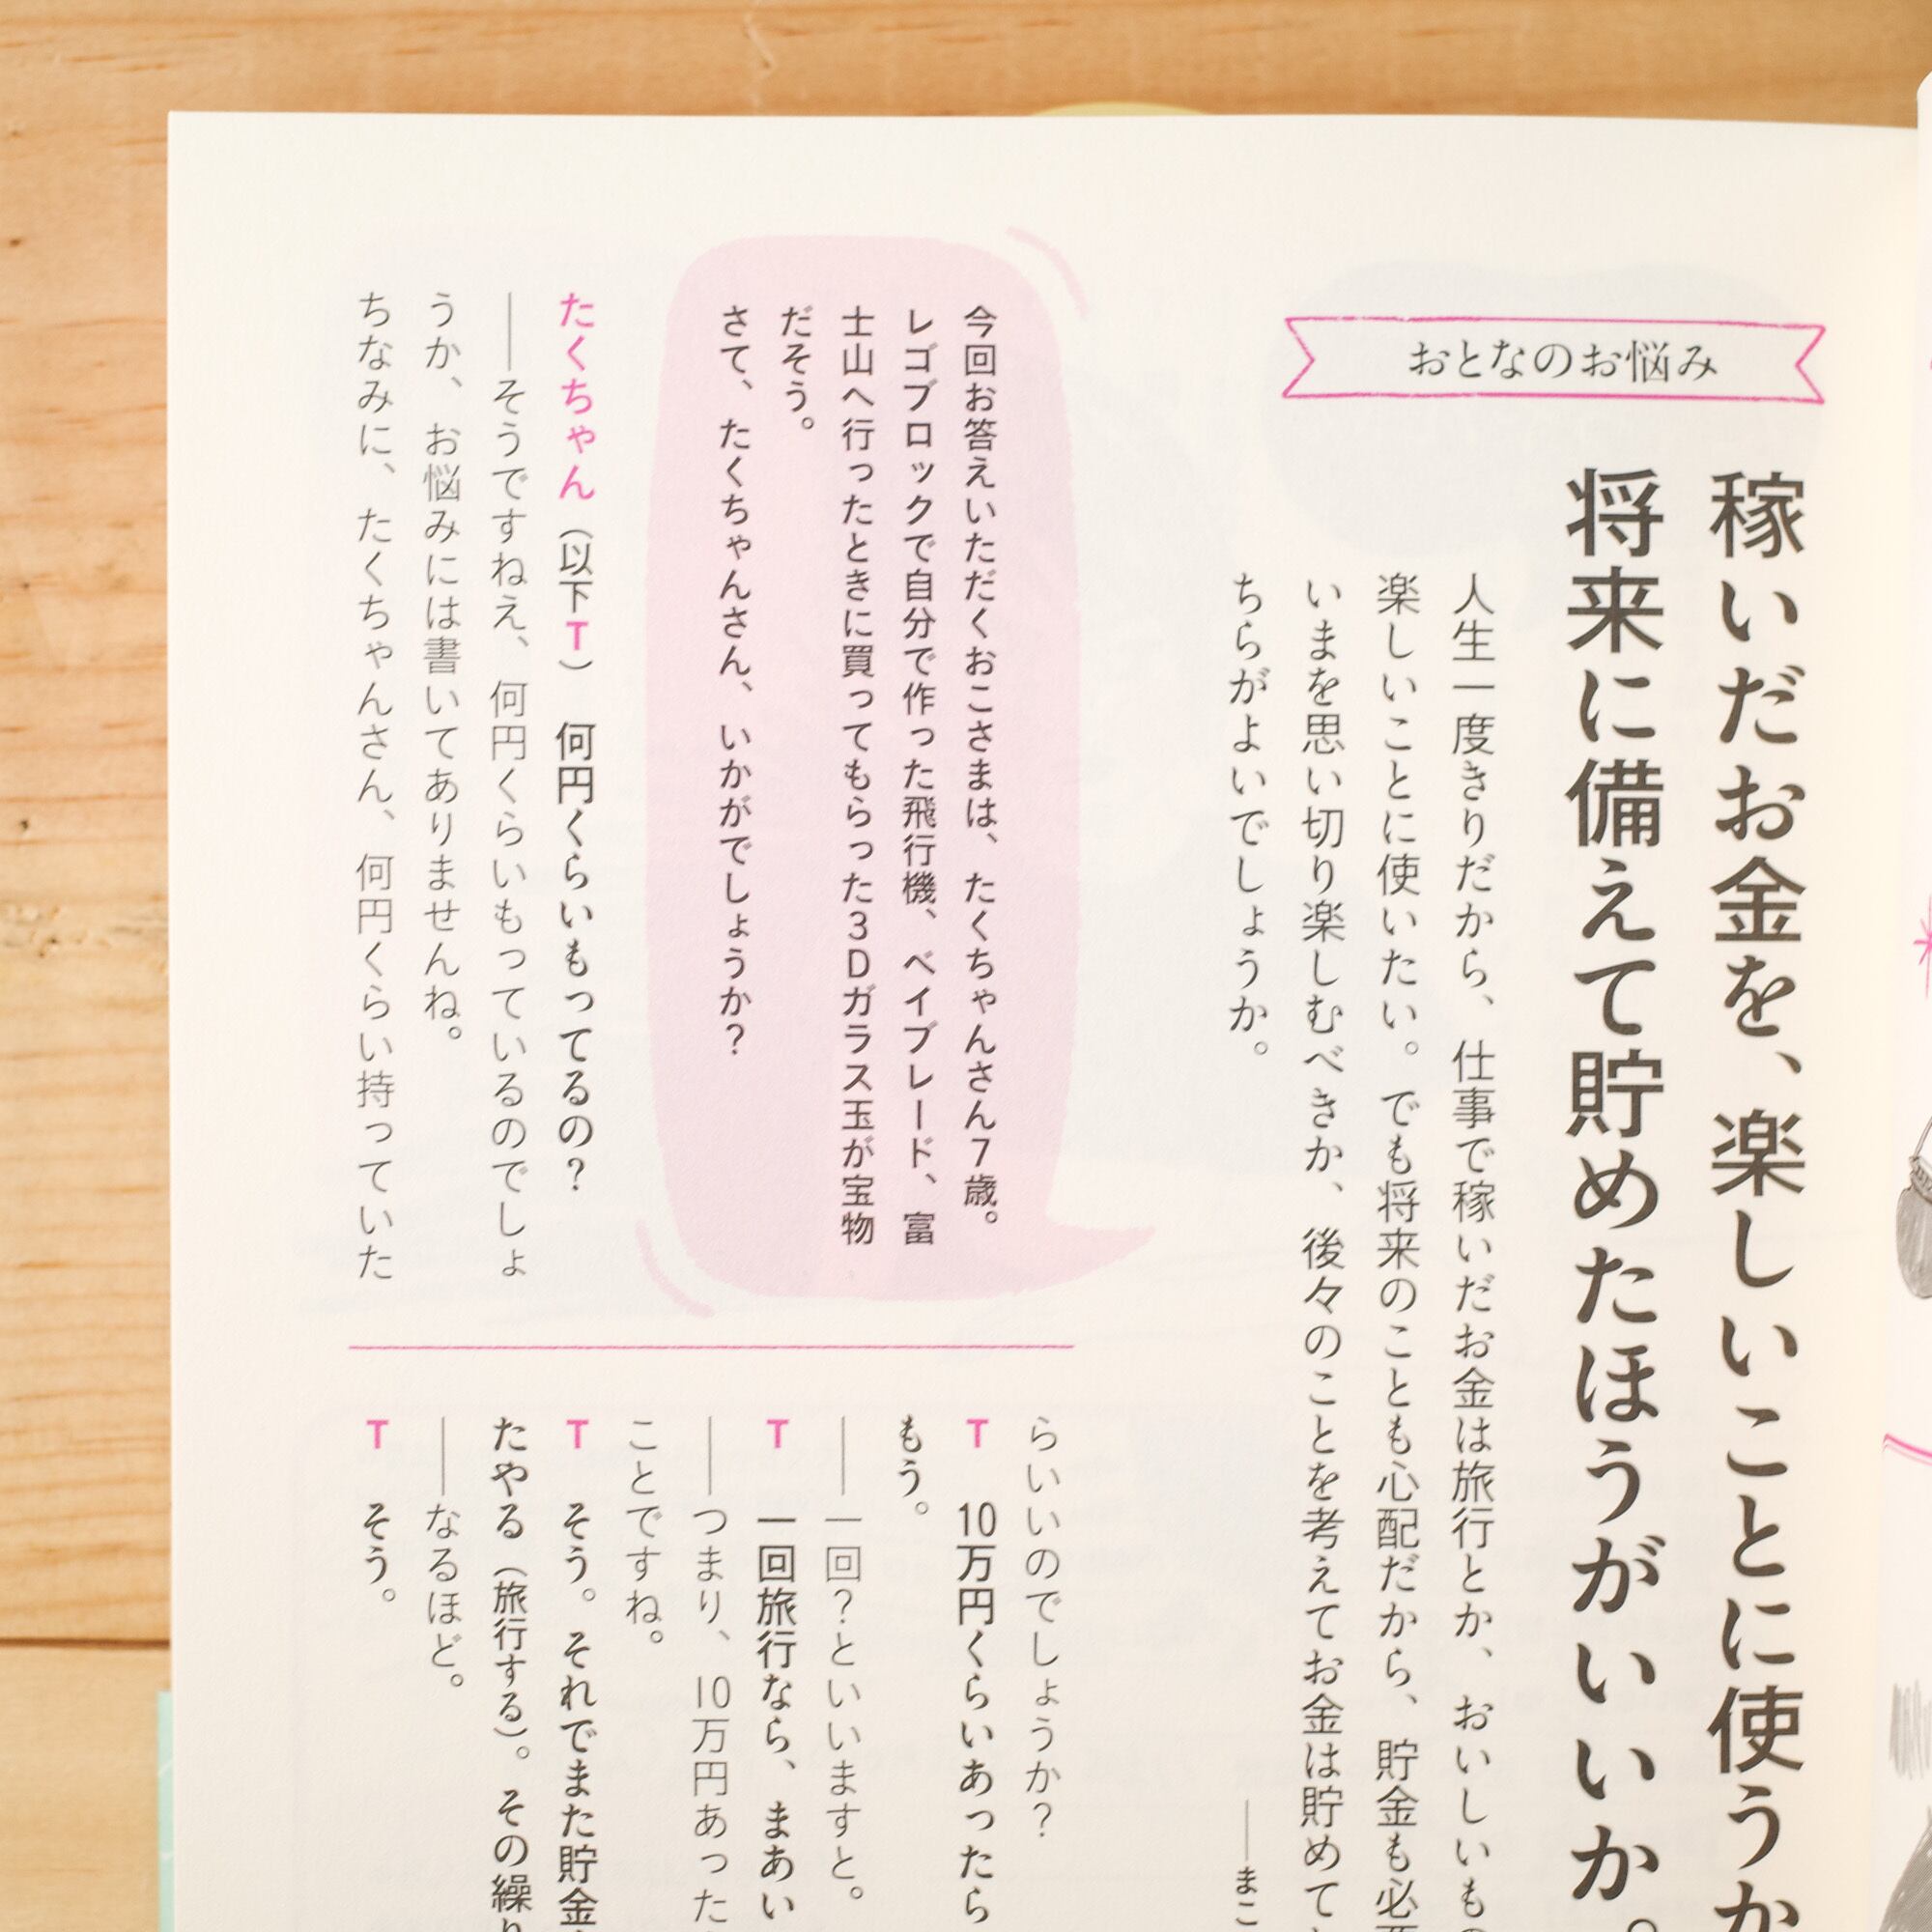 おとなのお悩み
稼いだお金を、楽しいことに使うか
将来に備えて貯めたほうがいいか。
人生一度きりだから、仕事で稼いだお金は旅行とか、おいしいもの
楽しいことに使いたい。でも将来のことも心配だから、貯金も必要
いまを思い切り楽しむべきか、後々のことを考えてお金は貯めて
ちらがよいでしょうか。
——まこ
今回お答えいただくおこさまは、たくちゃんさん7歳。
レゴブロックで自分で作った飛行機、ベイブレード、富
士山へ行ったときに買ってもらった3Dガラス玉が宝物
だそう。
さて、たくちゃんさん、いかがでしょうか?
たくちゃん(以下T) 何円くらいもってるの?
——そうですねえ、何円くらいもっているのでしょ
うか、お悩みには書いてありませんね。
ちなみに、たくちゃんさん、何円くらい持っていた
らいいのでしょうか?
T 10万円くらいあったら
もう。
——一回?といいますと。
T 一回旅行なら、まあい
——つまり、10万円あった
ことですね。
T そう。それでまた貯金
たやる(旅行する)。その繰り
——なるほど。
T そう。